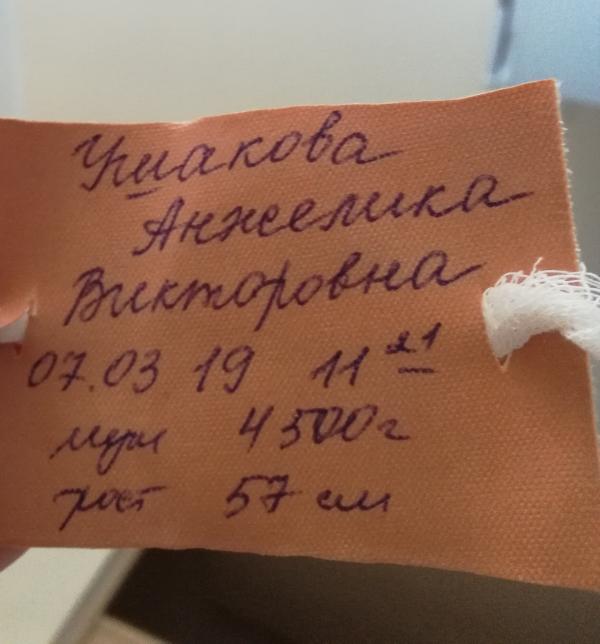 Ушакова
Анжелика
Викторовна
07.03 19 11 21
муж 4500г
рост 57 см